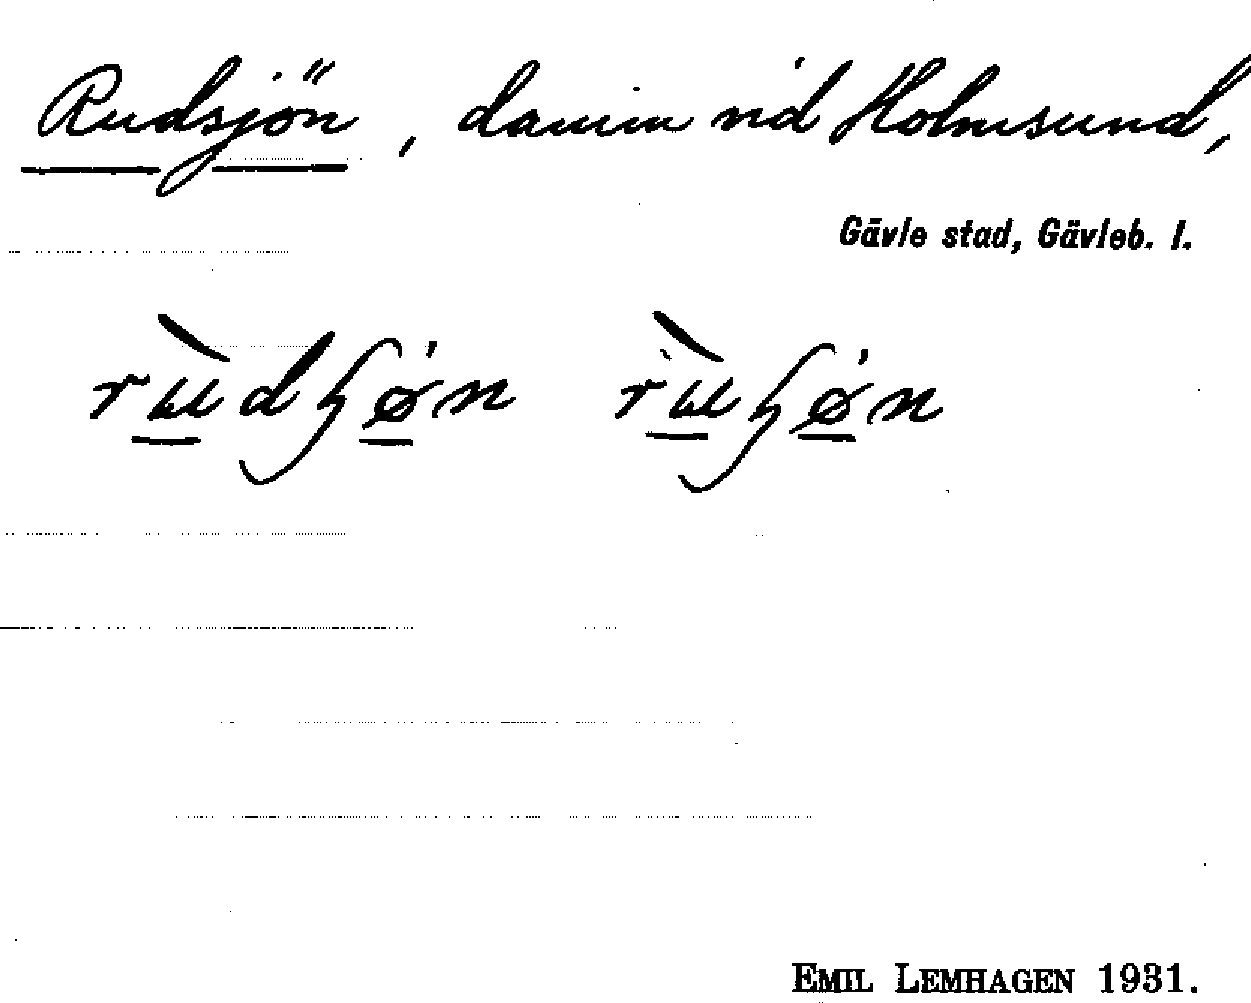 Rudsjön, damm vid Holmsund,
Gävle stad, Gävleb. l.
EMIL LEMHAGEN 1931.